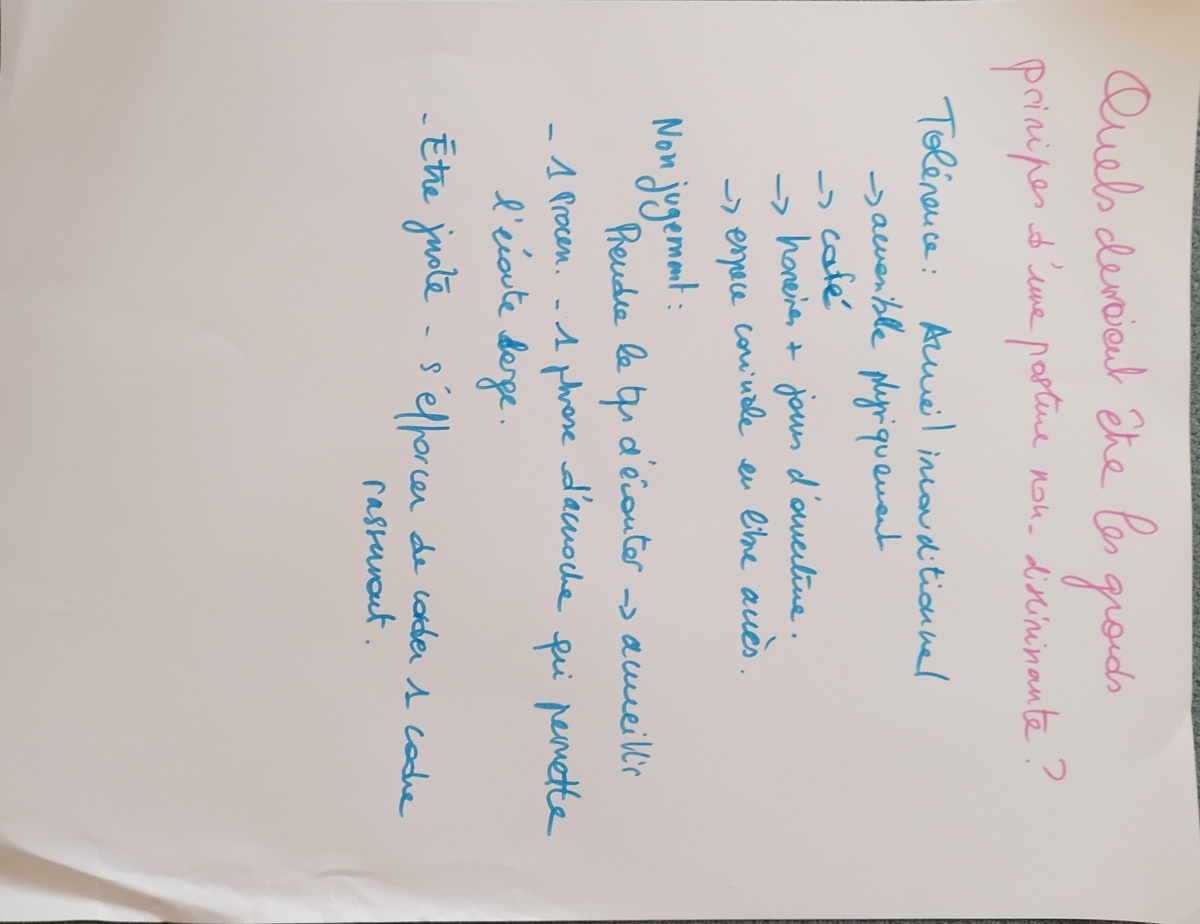 Quels devraient être les grands
principes d'une posture non-discriminante ?
Tolérance : Accueil inconditionnel
→ accessible physiquement
→ café
→ horaires + jours d'ouverture.
→ espace conviviale en libre accès.
Non jugement :
Prendre le tps d'écouter → accueillir
- 1 Procen. - 1 phrase d'accroche qui permette
l'écoute large.
- Être juste - s'efforcer de 1 cadre
rassurant.